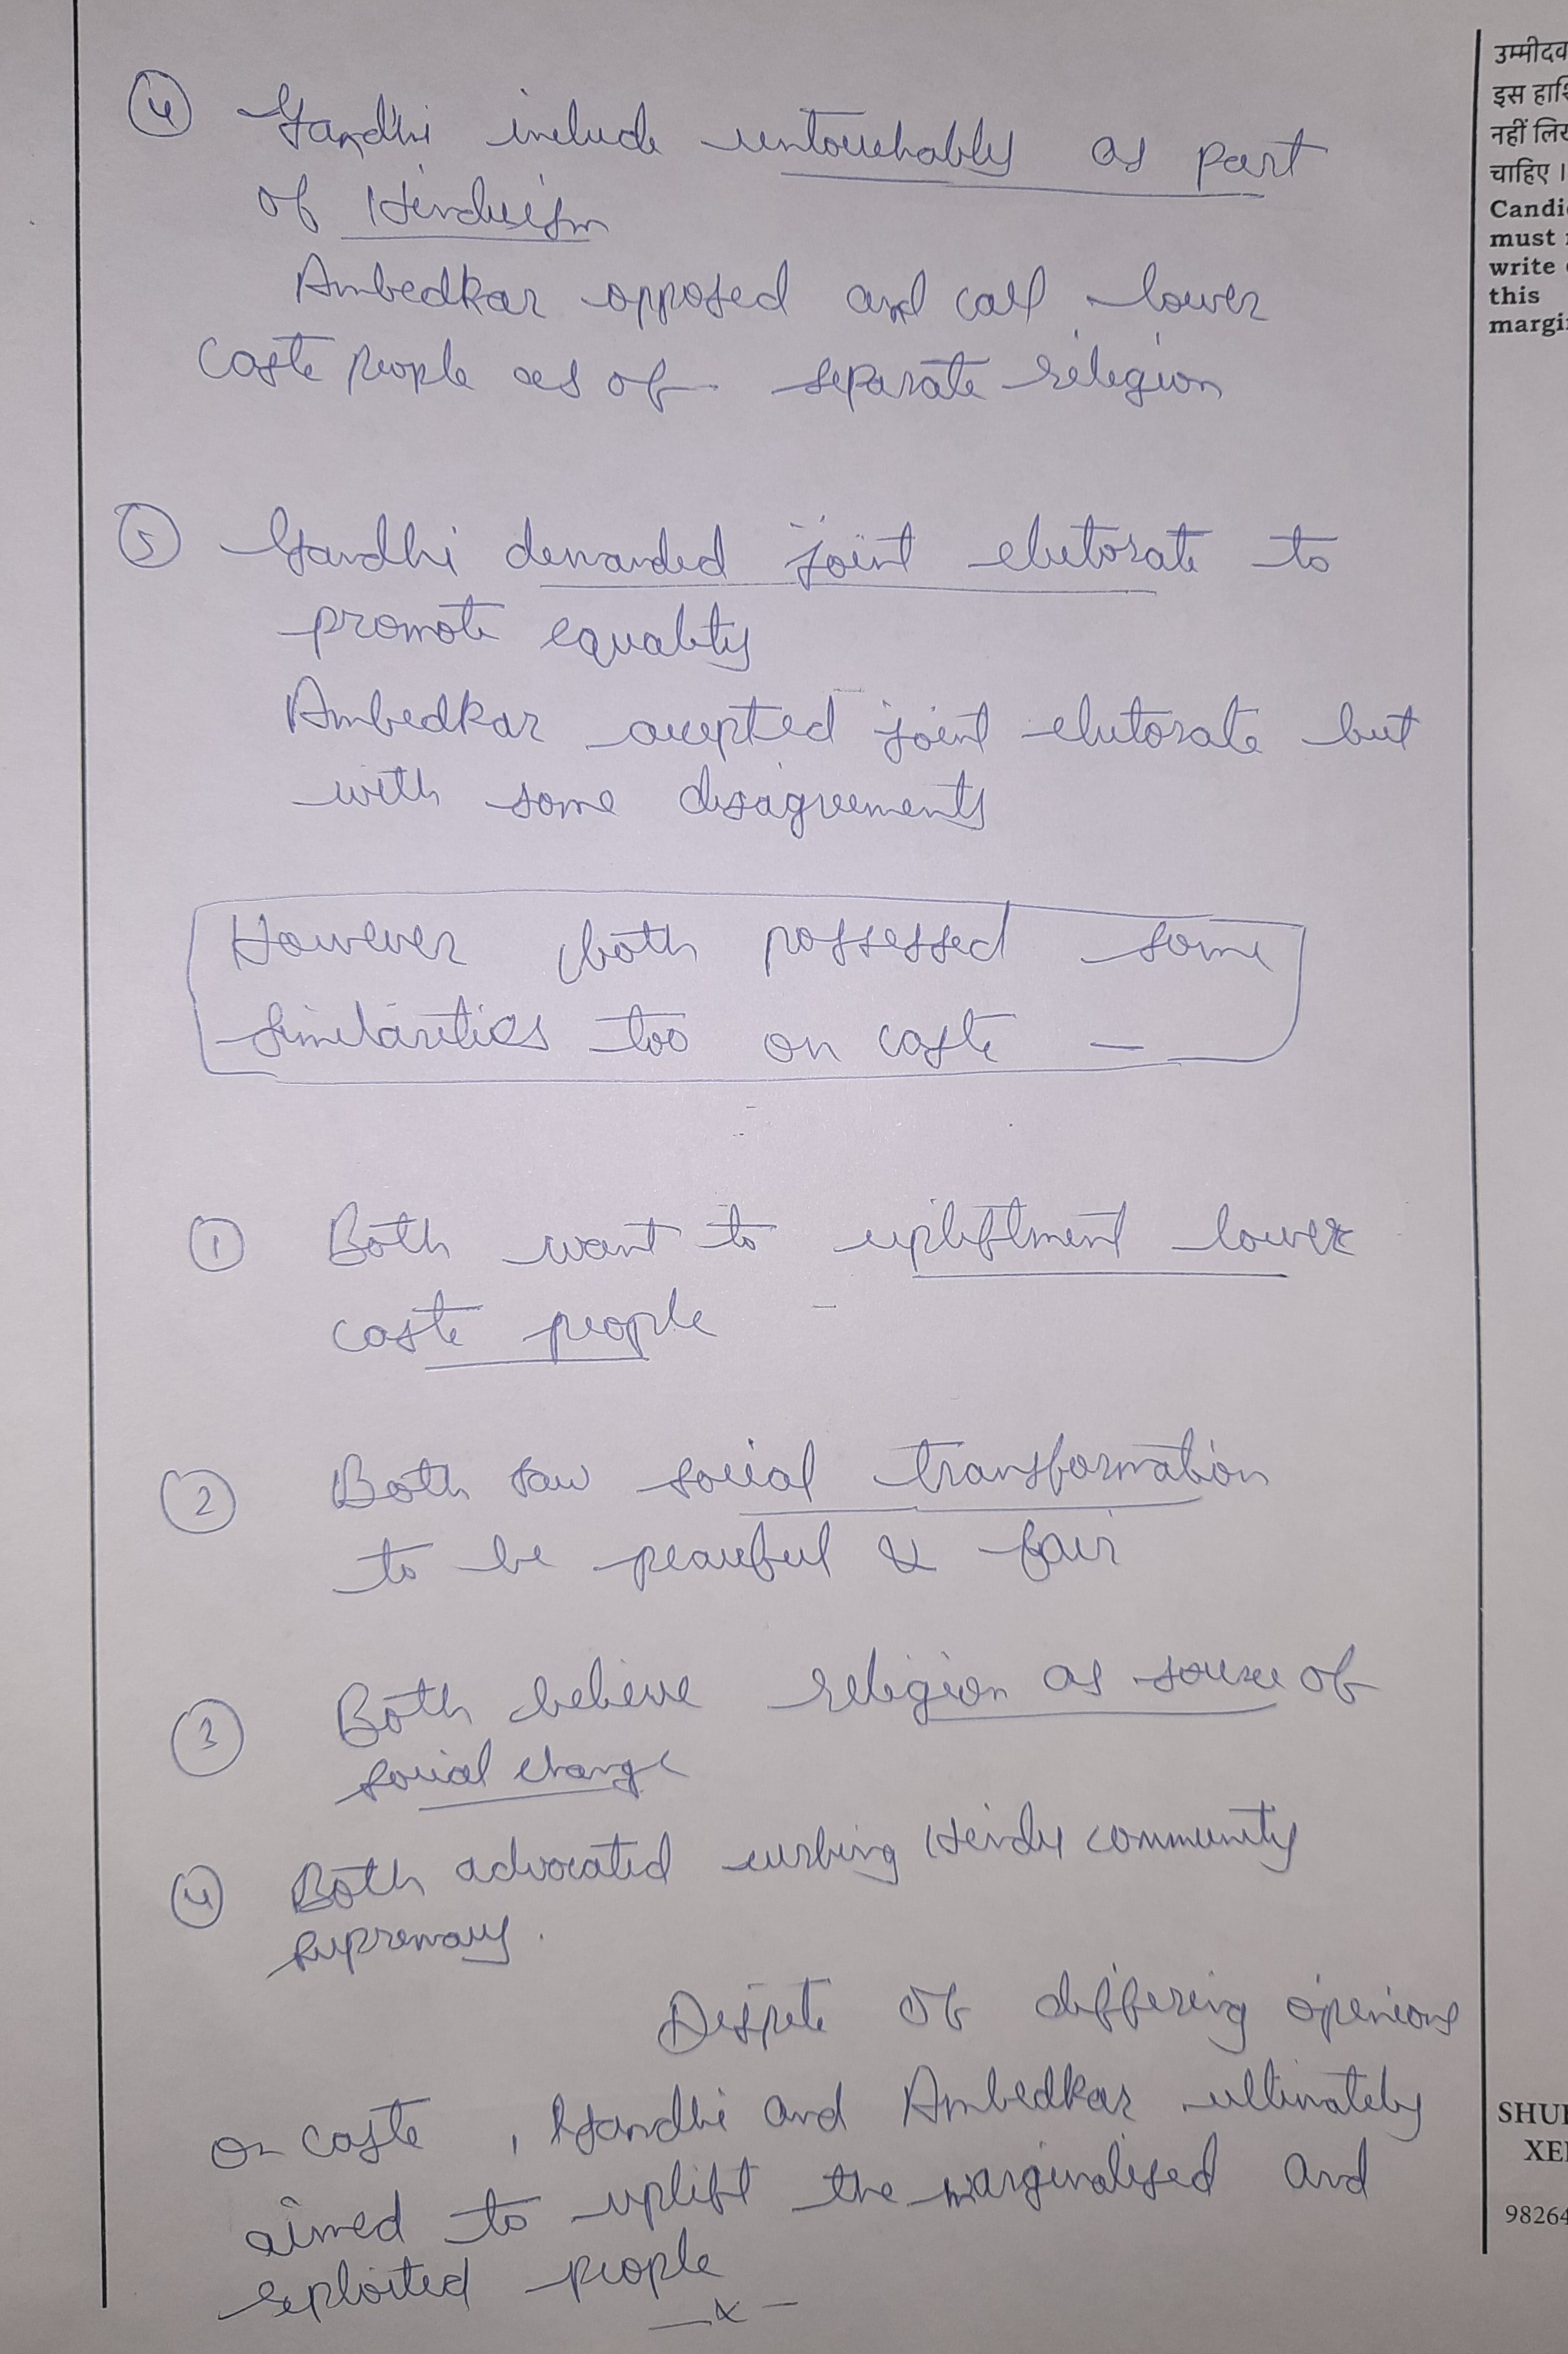 (4) Gandhi include untouchably as part
of Hinduism
Ambedkar opposed and call lower
caste people as of separate religion
(5) Gandhi demanded joint electorate to
promote equality
Ambedkar accepted joint electorate but
with some disagreements
However both possessed some
similarities too on caste –
(1) Both want to upliftment lower
caste people
(2) Both saw social transformation
to be peaceful & fair
(3) Both believe religion as source of
social change
(4) Both advocated curbing Hindu community
supremacy.
Despite of differing opinions
on caste, Gandhi and Ambedkar ultimately
aimed to uplift the marginalised and
exploited people
—x—
उम्मीदव
इस हाशि
नहीं लिख
चाहिए ।
Candi
must
write
this
margi
SHU
XE
98264